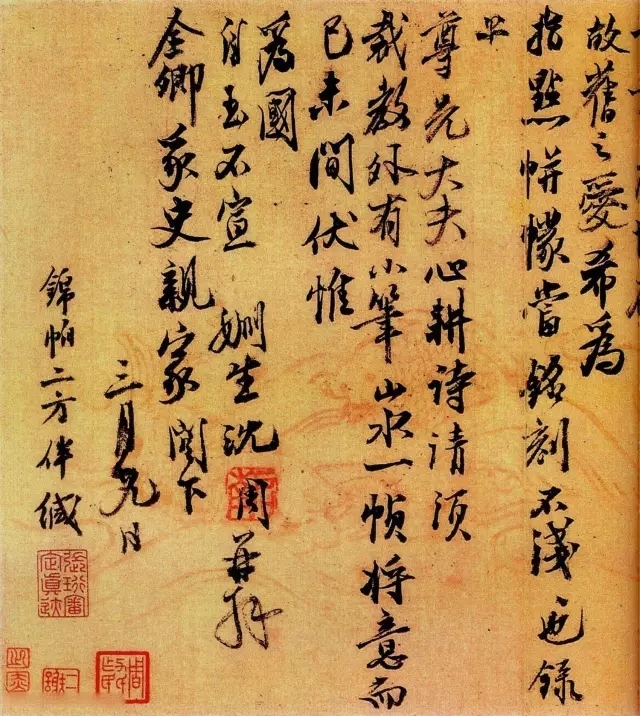 故舊之愛希為
指點帡幪當銘刻不淺也錄
上
尊兄大夫心耕詩請須
裁教外有小筆山水一幀將意而
已未間伏惟
為國
自玉不宣 姻生沈周再拜
全卿冢史親家閣下
三月九日
錦帕二方伴緘
張珩審定真跡